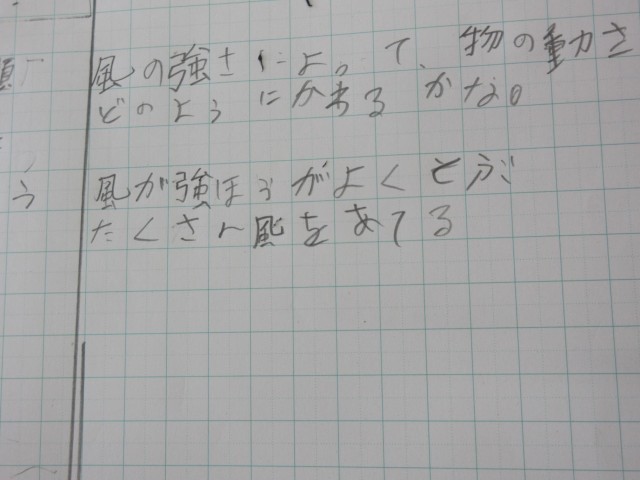 風の強さによって、物の動きさ
どのようにかわるかな。
風が強ほうがよくとぶ
たくさん風をあてる
う